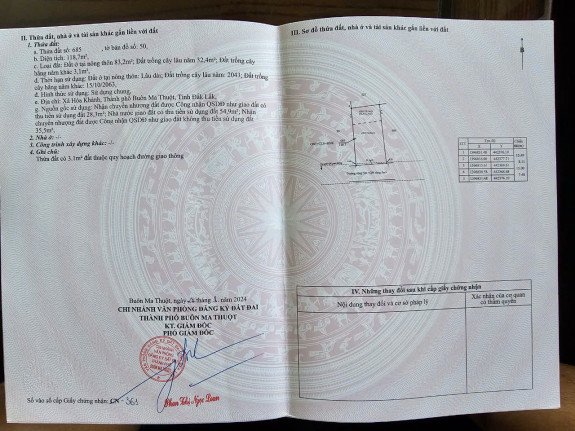 II. Thửa đất, nhà ở và tài sản khác gắn liền với đất
1. Thửa đất:
a. Thửa đất số: 685 , tờ bản đồ số: 50,
b. Diện tích: 118,7m²,
c. Loại đất: Đất ở tại nông thôn 83,2m²; Đất trồng cây lâu năm 32,4m²; Đất trồng
cây hằng năm 3,1m²,
d. Thời hạn sử dụng: Đất ở tại nông thôn: Lâu dài; Đất trồng cây lâu năm: 2043; Đất trồng
cây hằng năm khác: 15/10/2063,
đ. Hình thức sử dụng: Sử dụng chung,
e. Địa chỉ: Xã Hòa Khánh, Thành phố Buôn Ma Thuột, Tỉnh Đắk Lắk,
g. Nguồn gốc sử dụng: Nhận chuyển nhượng đất được Công nhận QSDĐ như giao đất có
thu tiền sử dụng đất 28,3m²; Nhà nước giao đất có thu tiền sử dụng đất 54,9m²; Nhận
chuyển nhượng đất được Công nhận QSDĐ như giao đất không thu tiền sử dụng đất
35,5m².
2. Nhà ở: -/-
3. Công trình xây dựng khác: -/-
4. Ghi chú:
Thửa đất có 3.1m² đất thuộc quy hoạch đường giao thông
Buôn Ma Thuột, ngày tháng năm 2024
CHI NHÁNH VĂN PHÒNG ĐĂNG KÝ ĐẤT ĐAI
THÀNH PHỐ BUÔN MA THUỘT
KT. GIÁM ĐỐC
PHÓ GIÁM ĐỐC
Phan Thị Ngọc Loan
Số vào sổ cấp Giấy chứng nhận: CN-361
III. Sơ đồ thửa đất, nhà ở và tài sản khác gắn liền với đất
IV. Những thay đổi sau khi cấp giấy chứng nhận
Nội dung thay đổi và cơ sở pháp lý
Xác nhận của cơ quan
có thẩm quyền